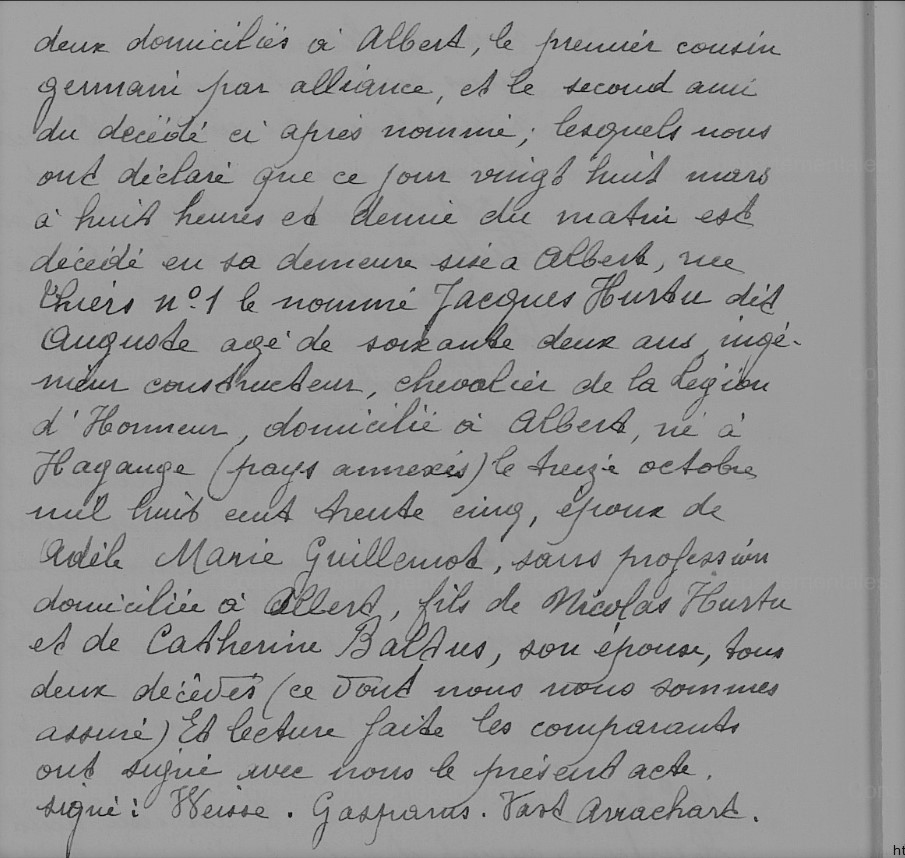 deux domiciliés à Albert, le premier cousin
germain par alliance, et le second ami
du décédé ci après nommé ; lesquels nous
ont déclaré que ce jour vingt huit mars
à huit heures et demie du matin est
décédé en sa demeure sise a Albert, rue
Thiers nº1 le nommé Jacques Hurtu dit
Auguste agé de soixante deux ans, ingé-
nieur constructeur, chevalier de la Légion
d'Honneur, domicilié à Albert, né à
Hagange (pays annexés) le treize octobre
mil huit cent trente cinq, époux de
Adèle Marie Guillemot, sans profession
domiciliée à Albert, fils de Nicolas Hurtu
et de Catherine Baltus, son épouse, tous
deux décédés (ce dont nous nous sommes
assuré) Et lecture faite les comparants
ont signé avec nous le présent acte.
signé : Weisse . Gaspard . Vast Arrachart .